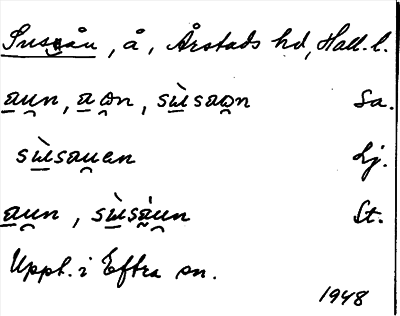 Suseån, å, Årstads hd, Hall. l.
a̲u̯n, a̲ ω̯n, sὼ̲saω̯n Sa.
sὼ̲sau̯en Lj.
a̲u̯n, sὼ̲sàu̯n St.
Uppt. i Eftra sn.
1948